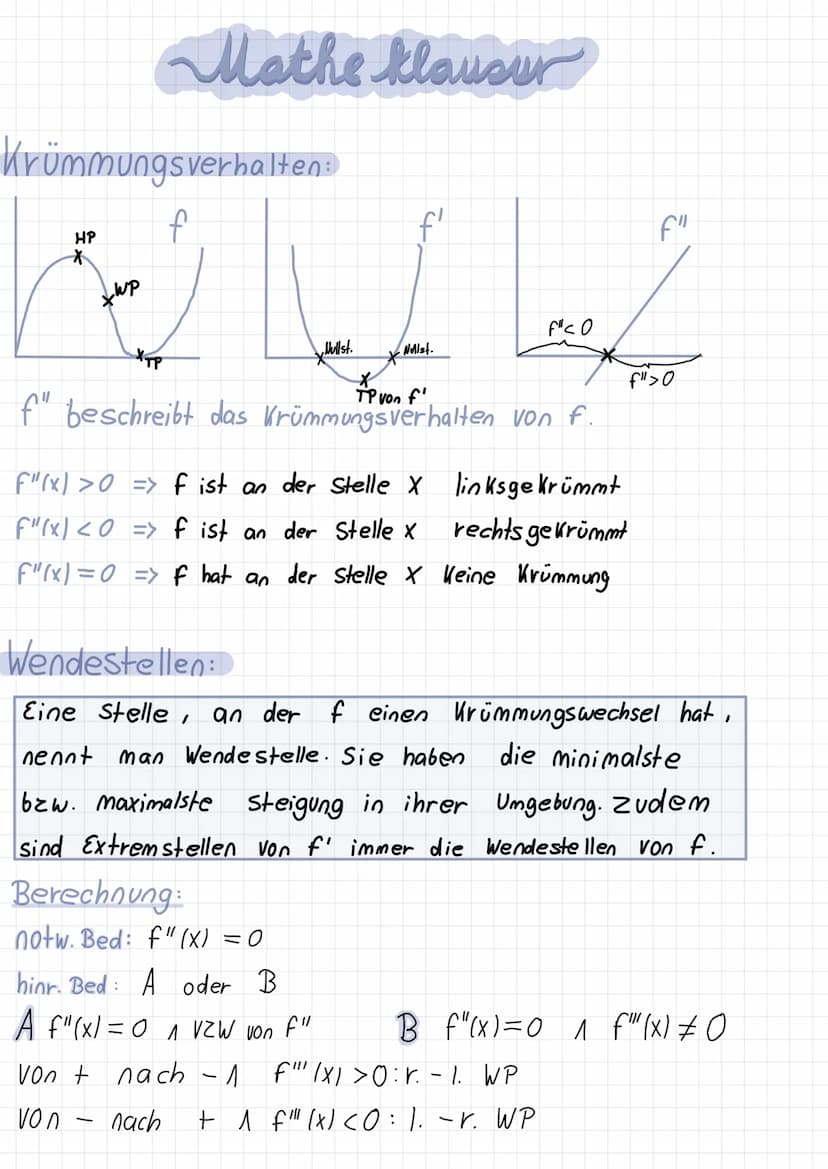 Mathe klausur
Krümmungsverhalten:
f
HP
WP
TP
f'
Nullst.
Nullst.
TP von f'
f''
f''< 0
f''>0
f'' beschreibt das Krümmungsverhalten von f.
f''(x) >0 => f ist an der Stelle x linksgekrümmt
f''(x) <0 => f ist an der Stelle x rechtsgekrümmt
f''(x) = 0 => f hat an der Stelle x keine Krümmung
Wendestellen:
Eine Stelle, an der f einen Krümmungswechsel hat,
nennt man Wendestelle. Sie haben die minimalste
bzw. maximalste Steigung in ihrer Umgebung. Zudem
sind Extremstellen von f' immer die Wendestellen von f.
Berechnung:
notw. Bed: f''(x) = 0
hinr. Bed: A oder B
A f''(x) = 0 ∧ VZW von f'' B f''(x)=0 ∧ f'''(x) ≠ 0
von + nach - ∧ f'''(x) >0: r. - l. WP
von - nach + ∧ f'''(x) <0: l. - r. WP